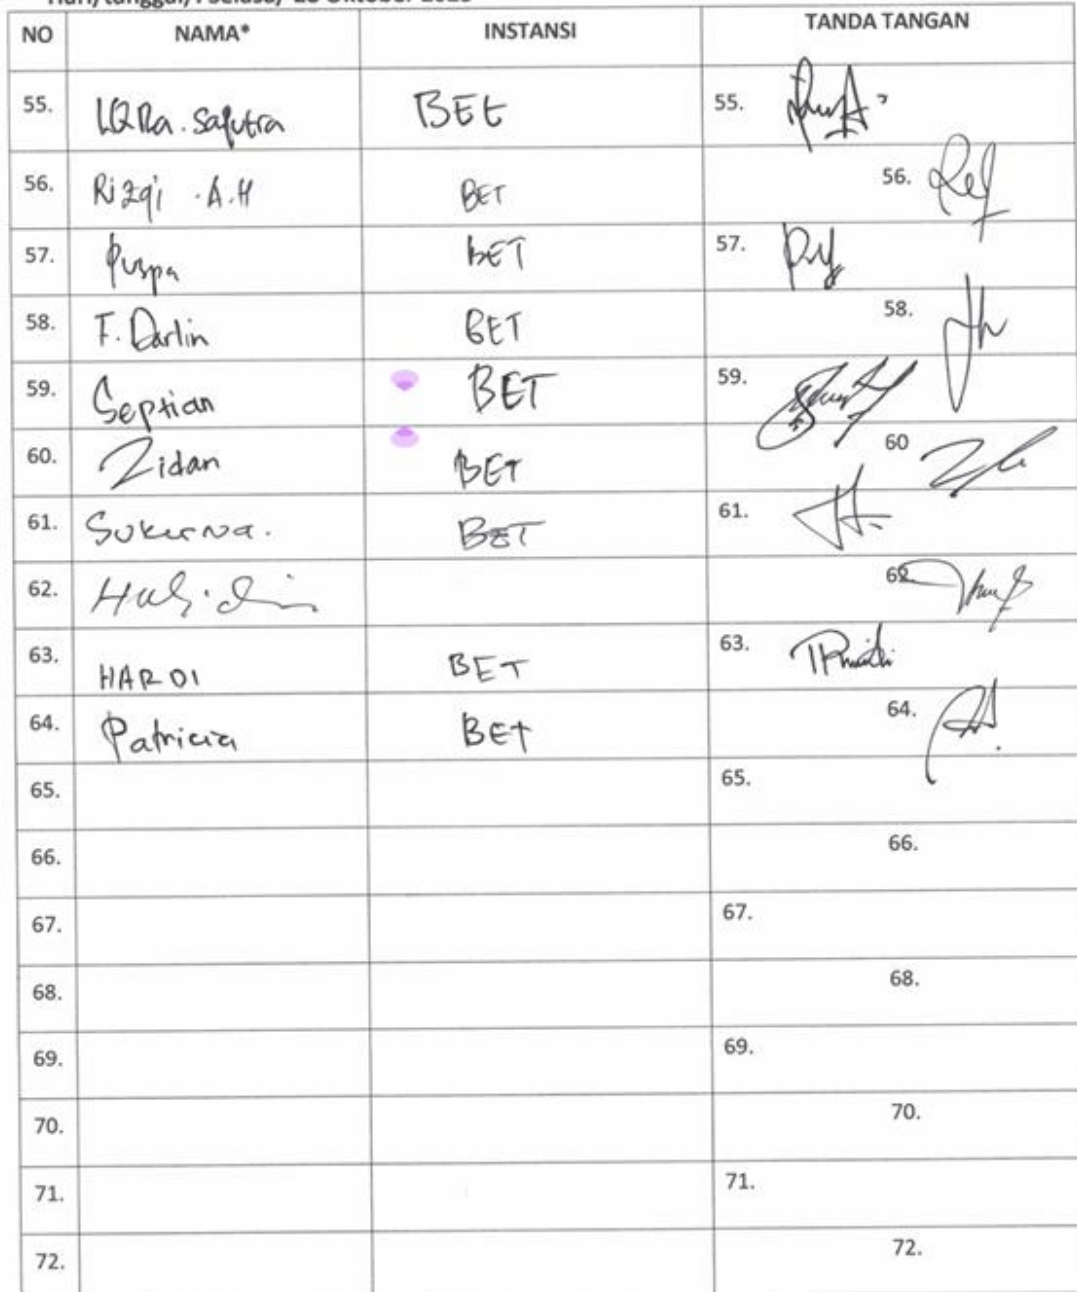 NO NAMA* INSTANSI TANDA TANGAN
55. IQRa. Saputra BEE 55.
56. Rizqi .A.H BET 56.
57. Puspa BET 57.
58. F. Darlin BET 58.
59. Septian BET 59.
60. Zidan BET 60
61. Sukerna. BET 61.
62. 62.
63. HARDI BET 63.
64. Patricia BET 64.
65. 65.
66. 66.
67. 67.
68. 68.
69. 69.
70. 70.
71. 71.
72. 72.